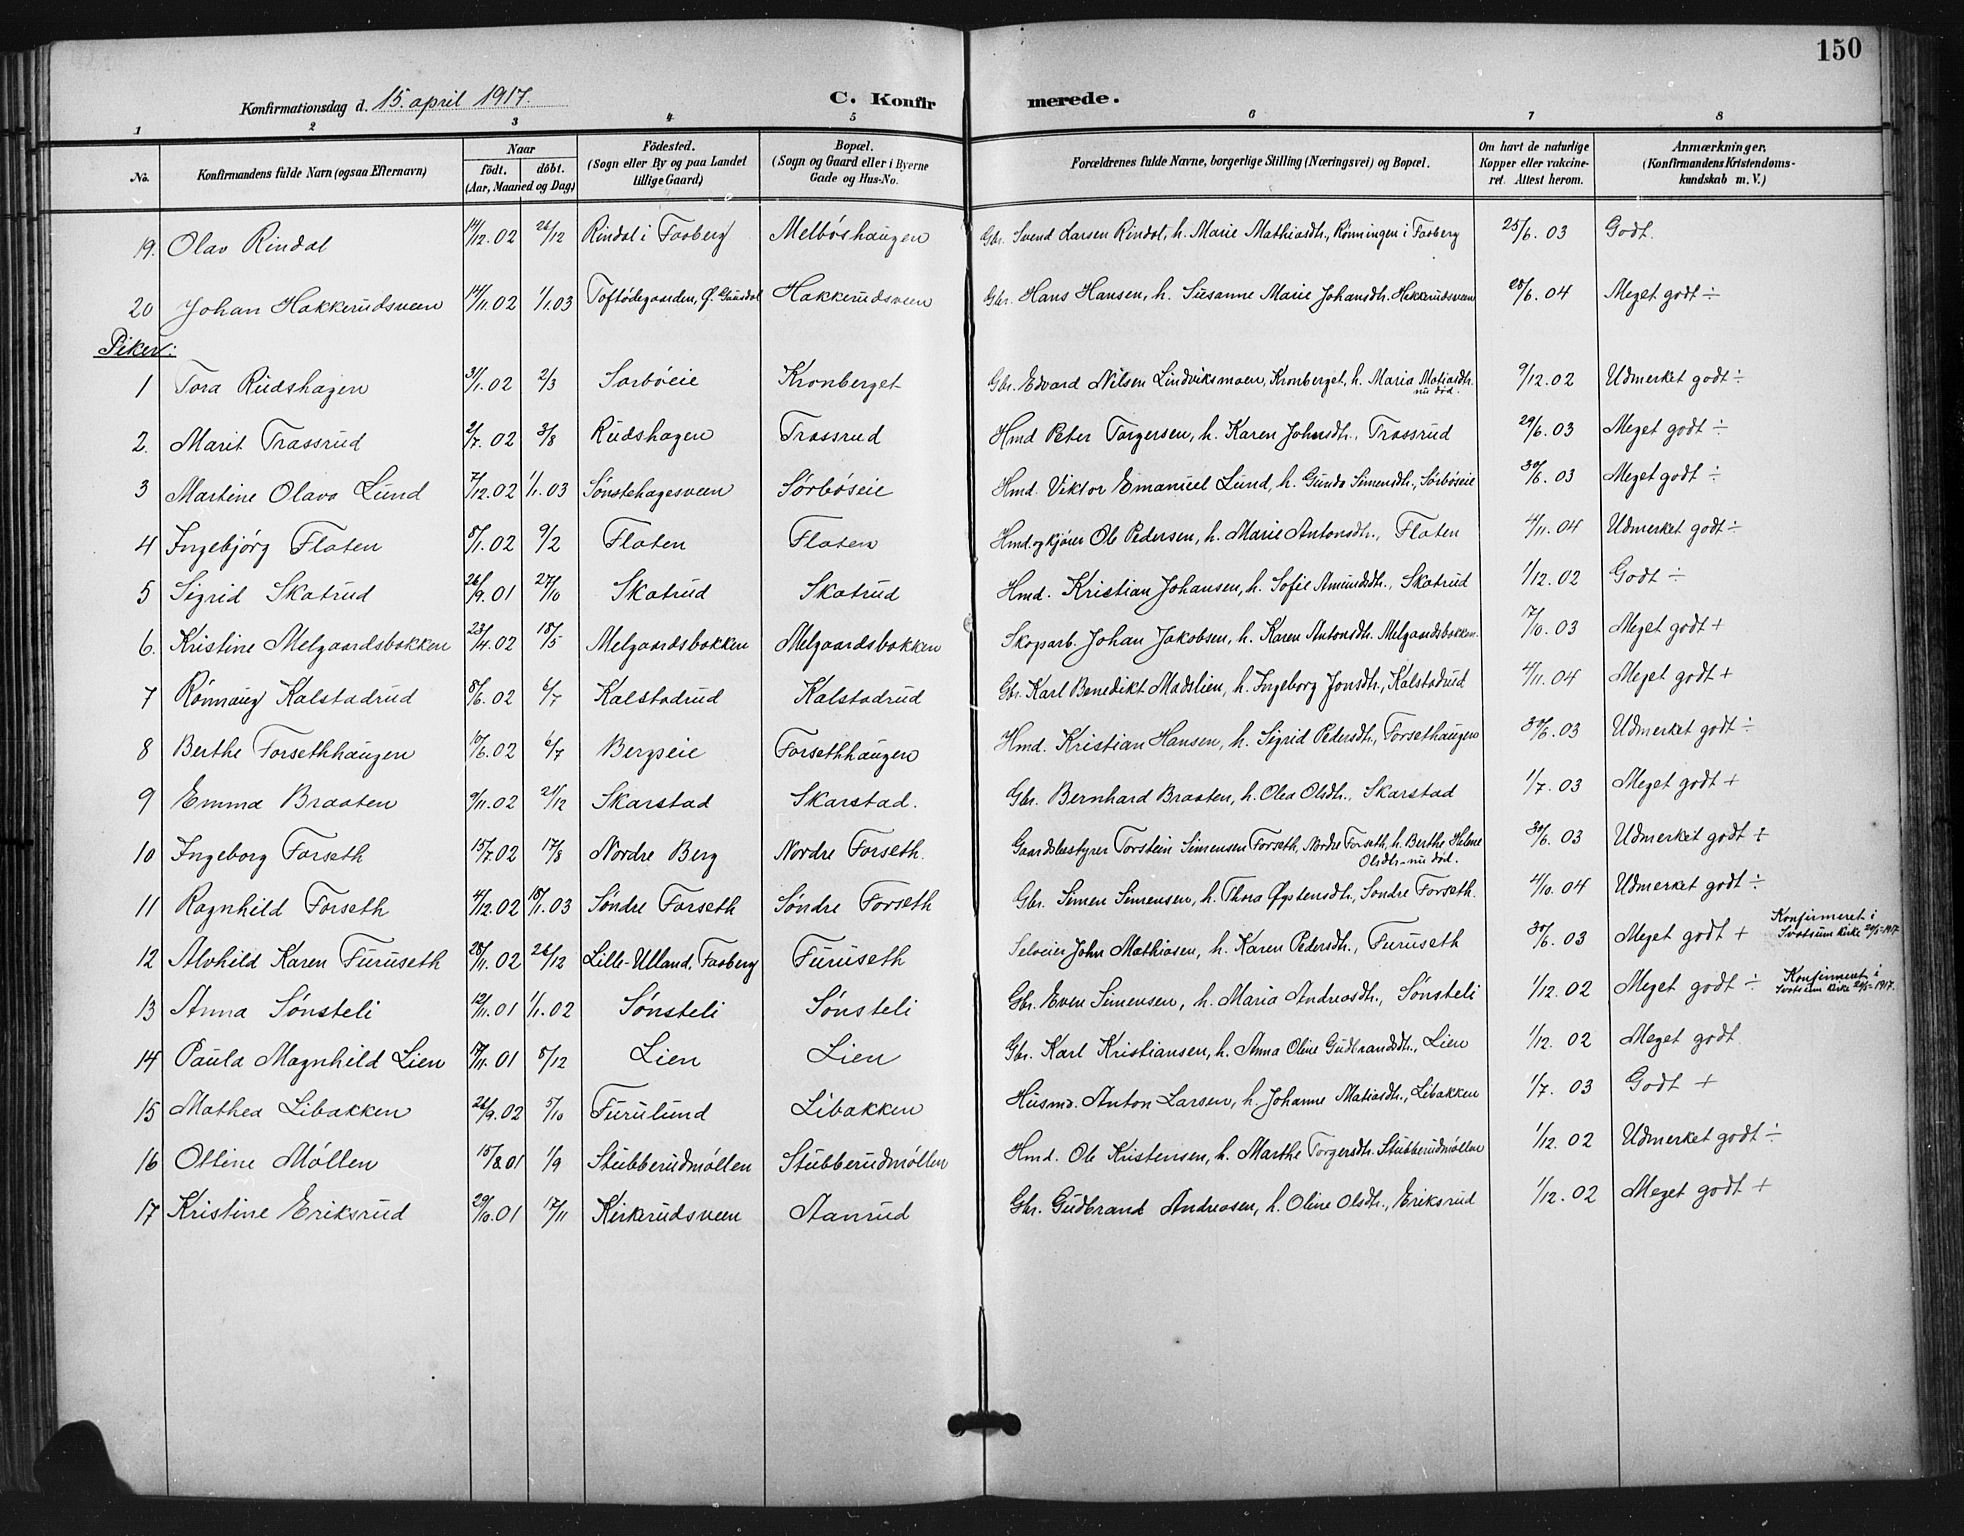 150
Konfirmationsdag d. 15. april 1917. C. Konfir merede.
1 2 3 4 5 6 7 8
No. Konfirmandens fulde Navn (ogsaa Efternavn) Naar födt. döbt. (Aar, Maaned og Dag) Födested. (Sogn eller By og paa Landet tillige Gaard) Bopæl. (Sogn og Gaard eller i Byerne Gade og Hus-No. Forældrenes fulde Navne, borgerlige Stilling (Næringsvei) og Bopæl. Om havt de naturlige Kopper eller vakcineret. Attest herom. Anmærkninger. (Konfirmandens Kristendomskundskab m. V.)
19. Olav Rindal 14/12.02 26/12 Rindal i Faaberg Melbøshaugen Gbr. Svend Larsen Rindal, h. Marie Mathiasdtr., Rønningen i Faaberg 25/6.03 Godt.
20 Johan Hakkerudsveen 14/11.02 1/1.03 Toftødegaarden, Ø. Gausdal Hakkerudsveen Gbr. Hans Hansen, h. Susanne Marie Johansdtr. Hakkerudsveen 28/6.04 Meget godt ÷
Piker:
1 Tora Rudshagen 31/1.02 2/3 Sørbøeie Kronberget Gbr. Edvard Nilsen Lindviksmoen, Kronberget, h. Maria Matiasdtr. nu død. 9/12.02 Udmerket godt ÷
2. Marit Trassrud 2/7.02 3/8 Rudshagen Trassrud Hmd Peter Torgersen, h. Karen Johnsdtr., Trassrud 29/6.03 Meget godt ÷
3 Martine Olava Lund 7/12.02 1/1.03 Sønstehagesveen Sørbøseie Hmd. Viktor Emanuel Lund, h. Gunda Simensdtr., Sørbøseie 30/6.03 Meget godt ÷
4 Ingebjørg Flaten 8/1.02 9/2 Flaten Flaten Hmd. og kjører Ole Pedersen, h. Marie Antonsdtr., Flaten 4/11.04 Udmerket godt ÷
5 Sigrid Skatrud 26/9.01 27/10 Skatrud Skatrud Hmd. Kristian Johansen, h. Sofie Amundsdtr., Skatrud 1/12.02 Godt ÷
6. Kristine Melgaardsbakken 23/4.02 18/5 Melgaardsbakken Melgaardsbakken Skoparb. Johan Jakobsen, h. Karen Antonsdtr. Melgaardsbakken. 7/10.03 Meget godt +
7 Rønnaug Kalstadrud 8/6.02 6/7 Kalstadrud Kalstadrud Gbr. Karl Benedikt Madslien, h. Ingeborg Jonsdtr., Kalstadrud 4/11.04 Meget godt +
8 Berthe Forsethhaugen 10/6.02 6/7 Bergseie Forsethhaugen Hmd. Kristian Hansen, h. Sigrid Pedersdtr., Forsethaugen 30/6.03 Udmerket godt ÷
9 Emma Braaten 9/11.02 21/12 Skarstad Skarstad. Gbr. Bernhard Braaten, h. Olea Olsdtr., Skarstad 1/7.03 Meget godt +
10 Ingeborg Forseth 15/7.02 17/8 Nordre Berg Nordre Forseth. Gaardsbestyrer Torstein Simensen Forseth, Nordre Forseth, h. Berthe Helene Olsdtr. - nu død. 30/6.03 Udmerket godt +
11 Ragnhild Forseth 4/12.02 18/1.03 Søndre Forseth Søndre Forseth Gbr. Simen Simensen, h. Thora Øystensdtr., Søndre Forseth. 4/10.04 Udmerket godt ÷
12 Alvhild Karen Furuseth 28/11.02 26/12 Lille-Ulland, Faaberg Furuseth Selveier John Mathiasen, h. Karen Pedersdtr., Furuseth 30/6.03 Meget godt + Konfirmeret i Svatsum Kirke 20/5-1917
13 Anna Sønsteli 12/11.01 1/1.02 Sønsteli Sønsteli Gbr. Even Simensen, h. Maria Andreasdtr., Sønsteli 1/12.02 Meget godt ÷ Konfirmeret i Svatsum Kirke 20/5-1917.
14 Paula Magnhild Lien 17/11.01 8/12 Lien Lien Gbr. Karl Kristiansen, h. Anna Oline Gudbrandsdtr., Lien 1/12.02 Meget godt.
15 Mathea Libakken 26/9.02 5/10 Furulund Libakken Husmd. Anton Larsen, h. Johanne Matiasdtr., Libakken 1/7.03 Godt +
16 Ottine Møllen 15/8.01 1/9 Stubberudmøllen Stubberudmøllen Hmd. Ole Kristensen, h. Marthe Torgersdtr. Stubberudmøllen 1/12.02 Udmerket godt ÷
17 Kristine Eriksrud 29/10.01 17/11 Kirkerudsveen Aanrud Gbr. Gudbrand Andreasen, h. Oline Olsdtr., Eriksrud 1/12.02 Meget godt +